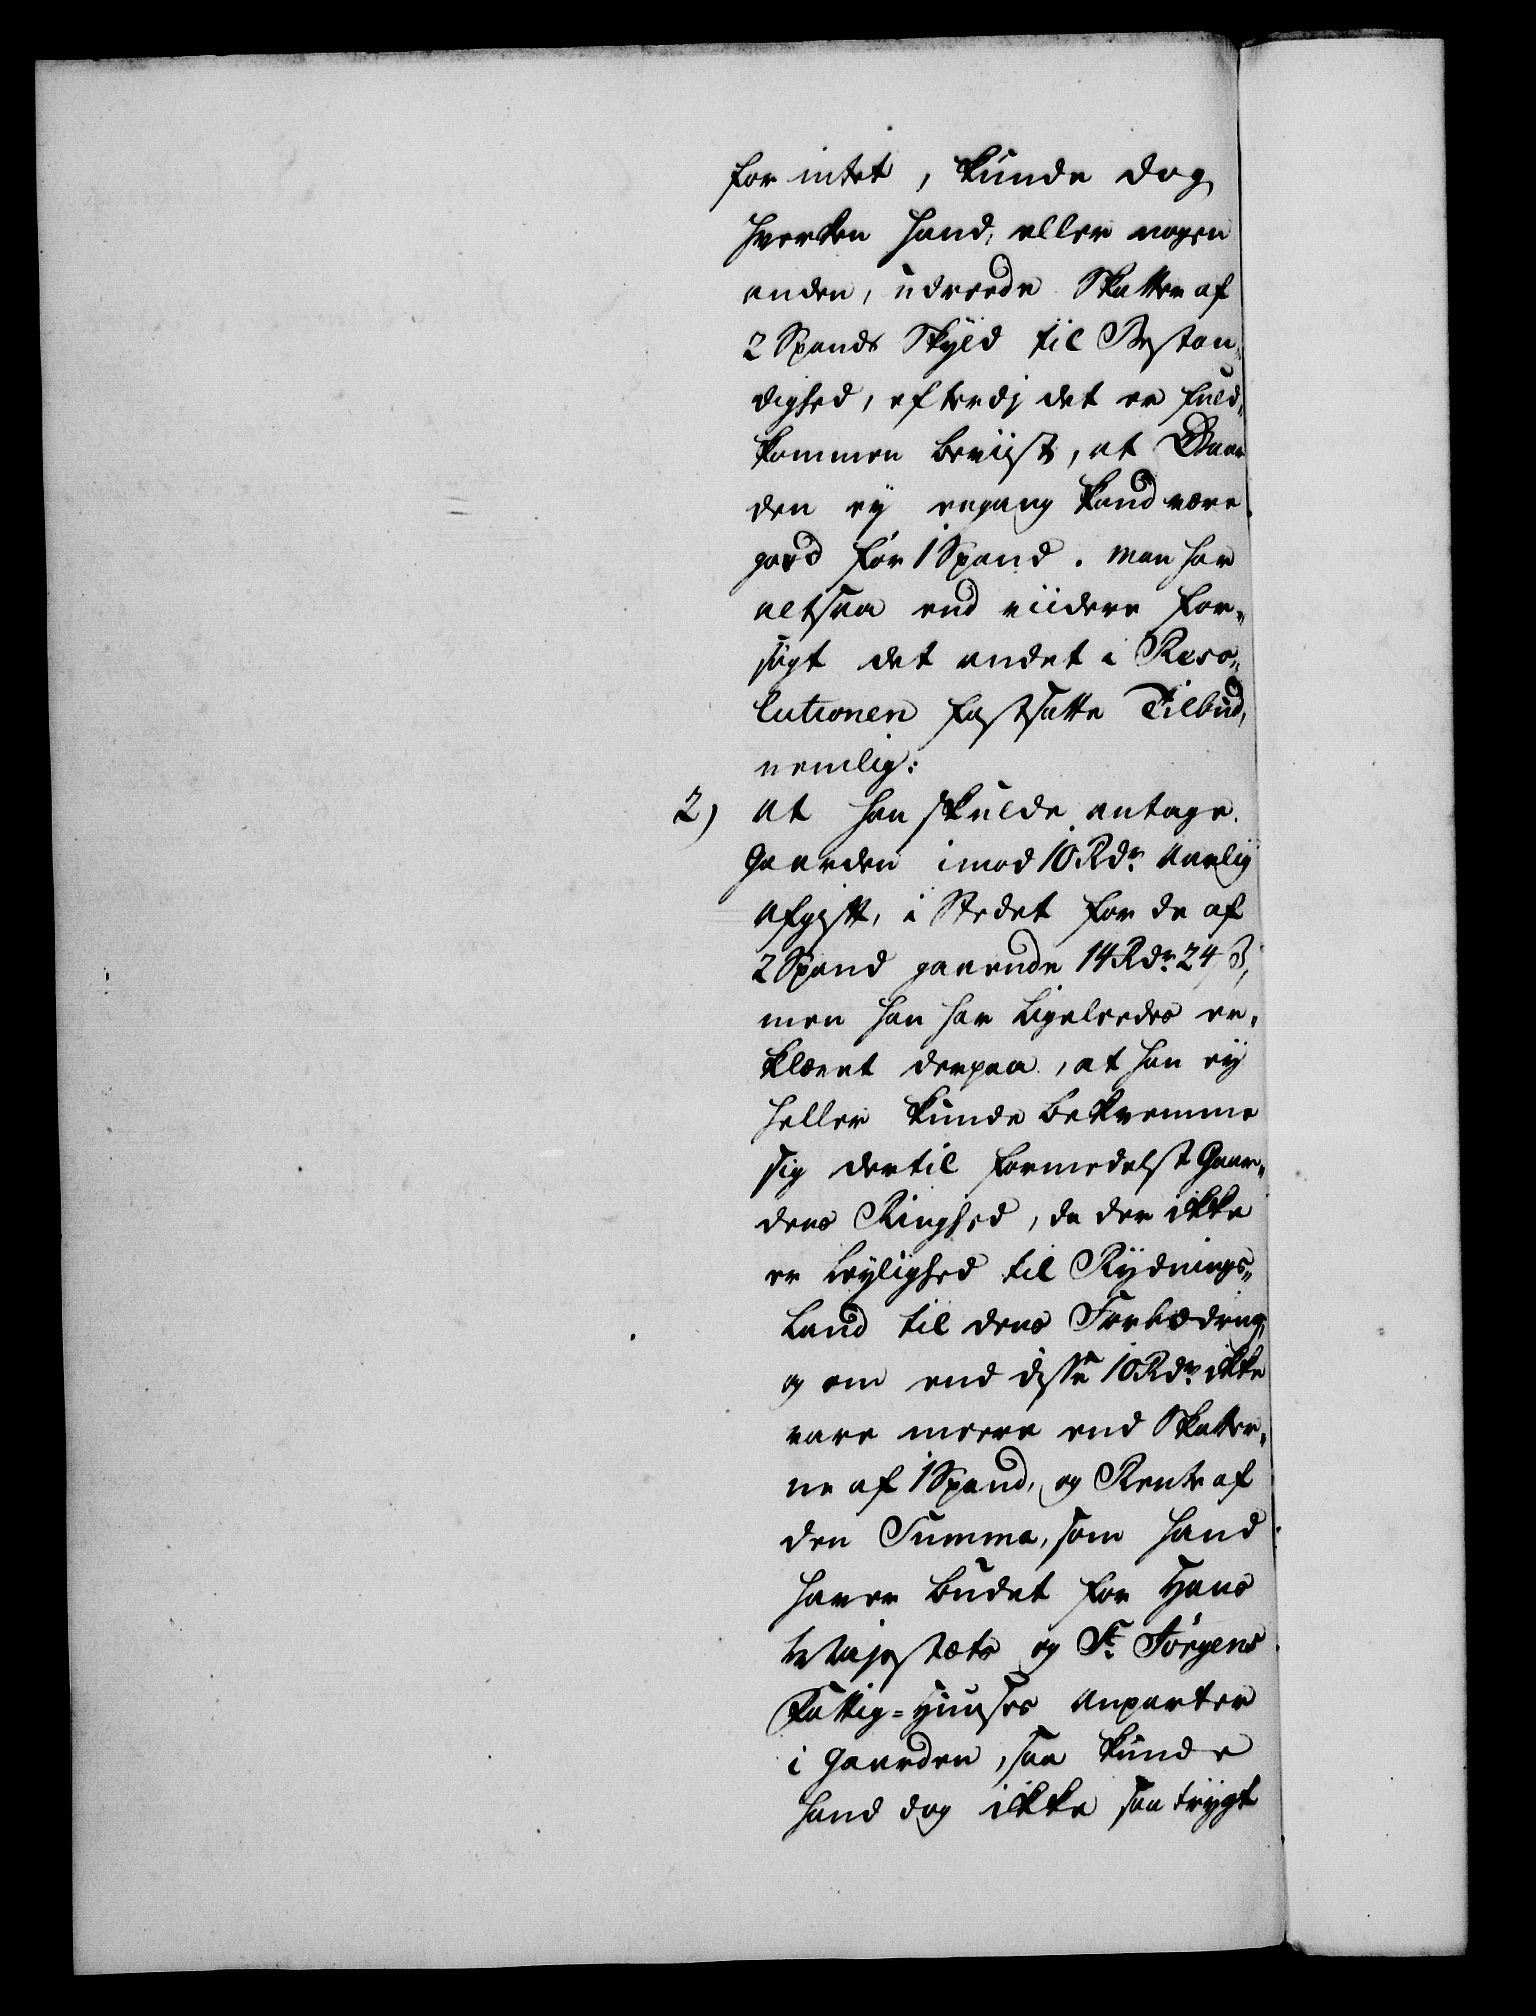 for intet, kunde dog
hverken hand, eller nogen
anden, udreede Skatter af
2 Spands Skyld til Bestan„
dighed, efterdj det er fuld„
kommen beviist, at Gaar
den ey engang kand være
goed før 1 Spand. Man har
altsaa end viidere for„
søgt det andet i Reso„
lutionen fastsatte Tilbud,
nemlig:
2) at han skulde antage
Gaarden imod 10 Rdr. aarlig
Afgift, i Stedet for de af
2 Spand gaaende 14 Rdr. 24 ß,
men han har ligeleedes er„
klæret derpaa, at han ey
heller kunde beqvemme
sig dertil formedelst Gaar„
dens Ringhed, da der ikke
er Leylighed til Rydnings„
Land til dens Forbædring,
og om end disse 10 Rdr. ikke
vare meere end Skatter„
ne af 1 Spand, og Rente af
den Summa, som hand
haver budet for Hans
Majestæts og St. Jørgens
Fattig=Huuses Anparter
i Gaarden, saa kunde
hand dog ikke saa trygt